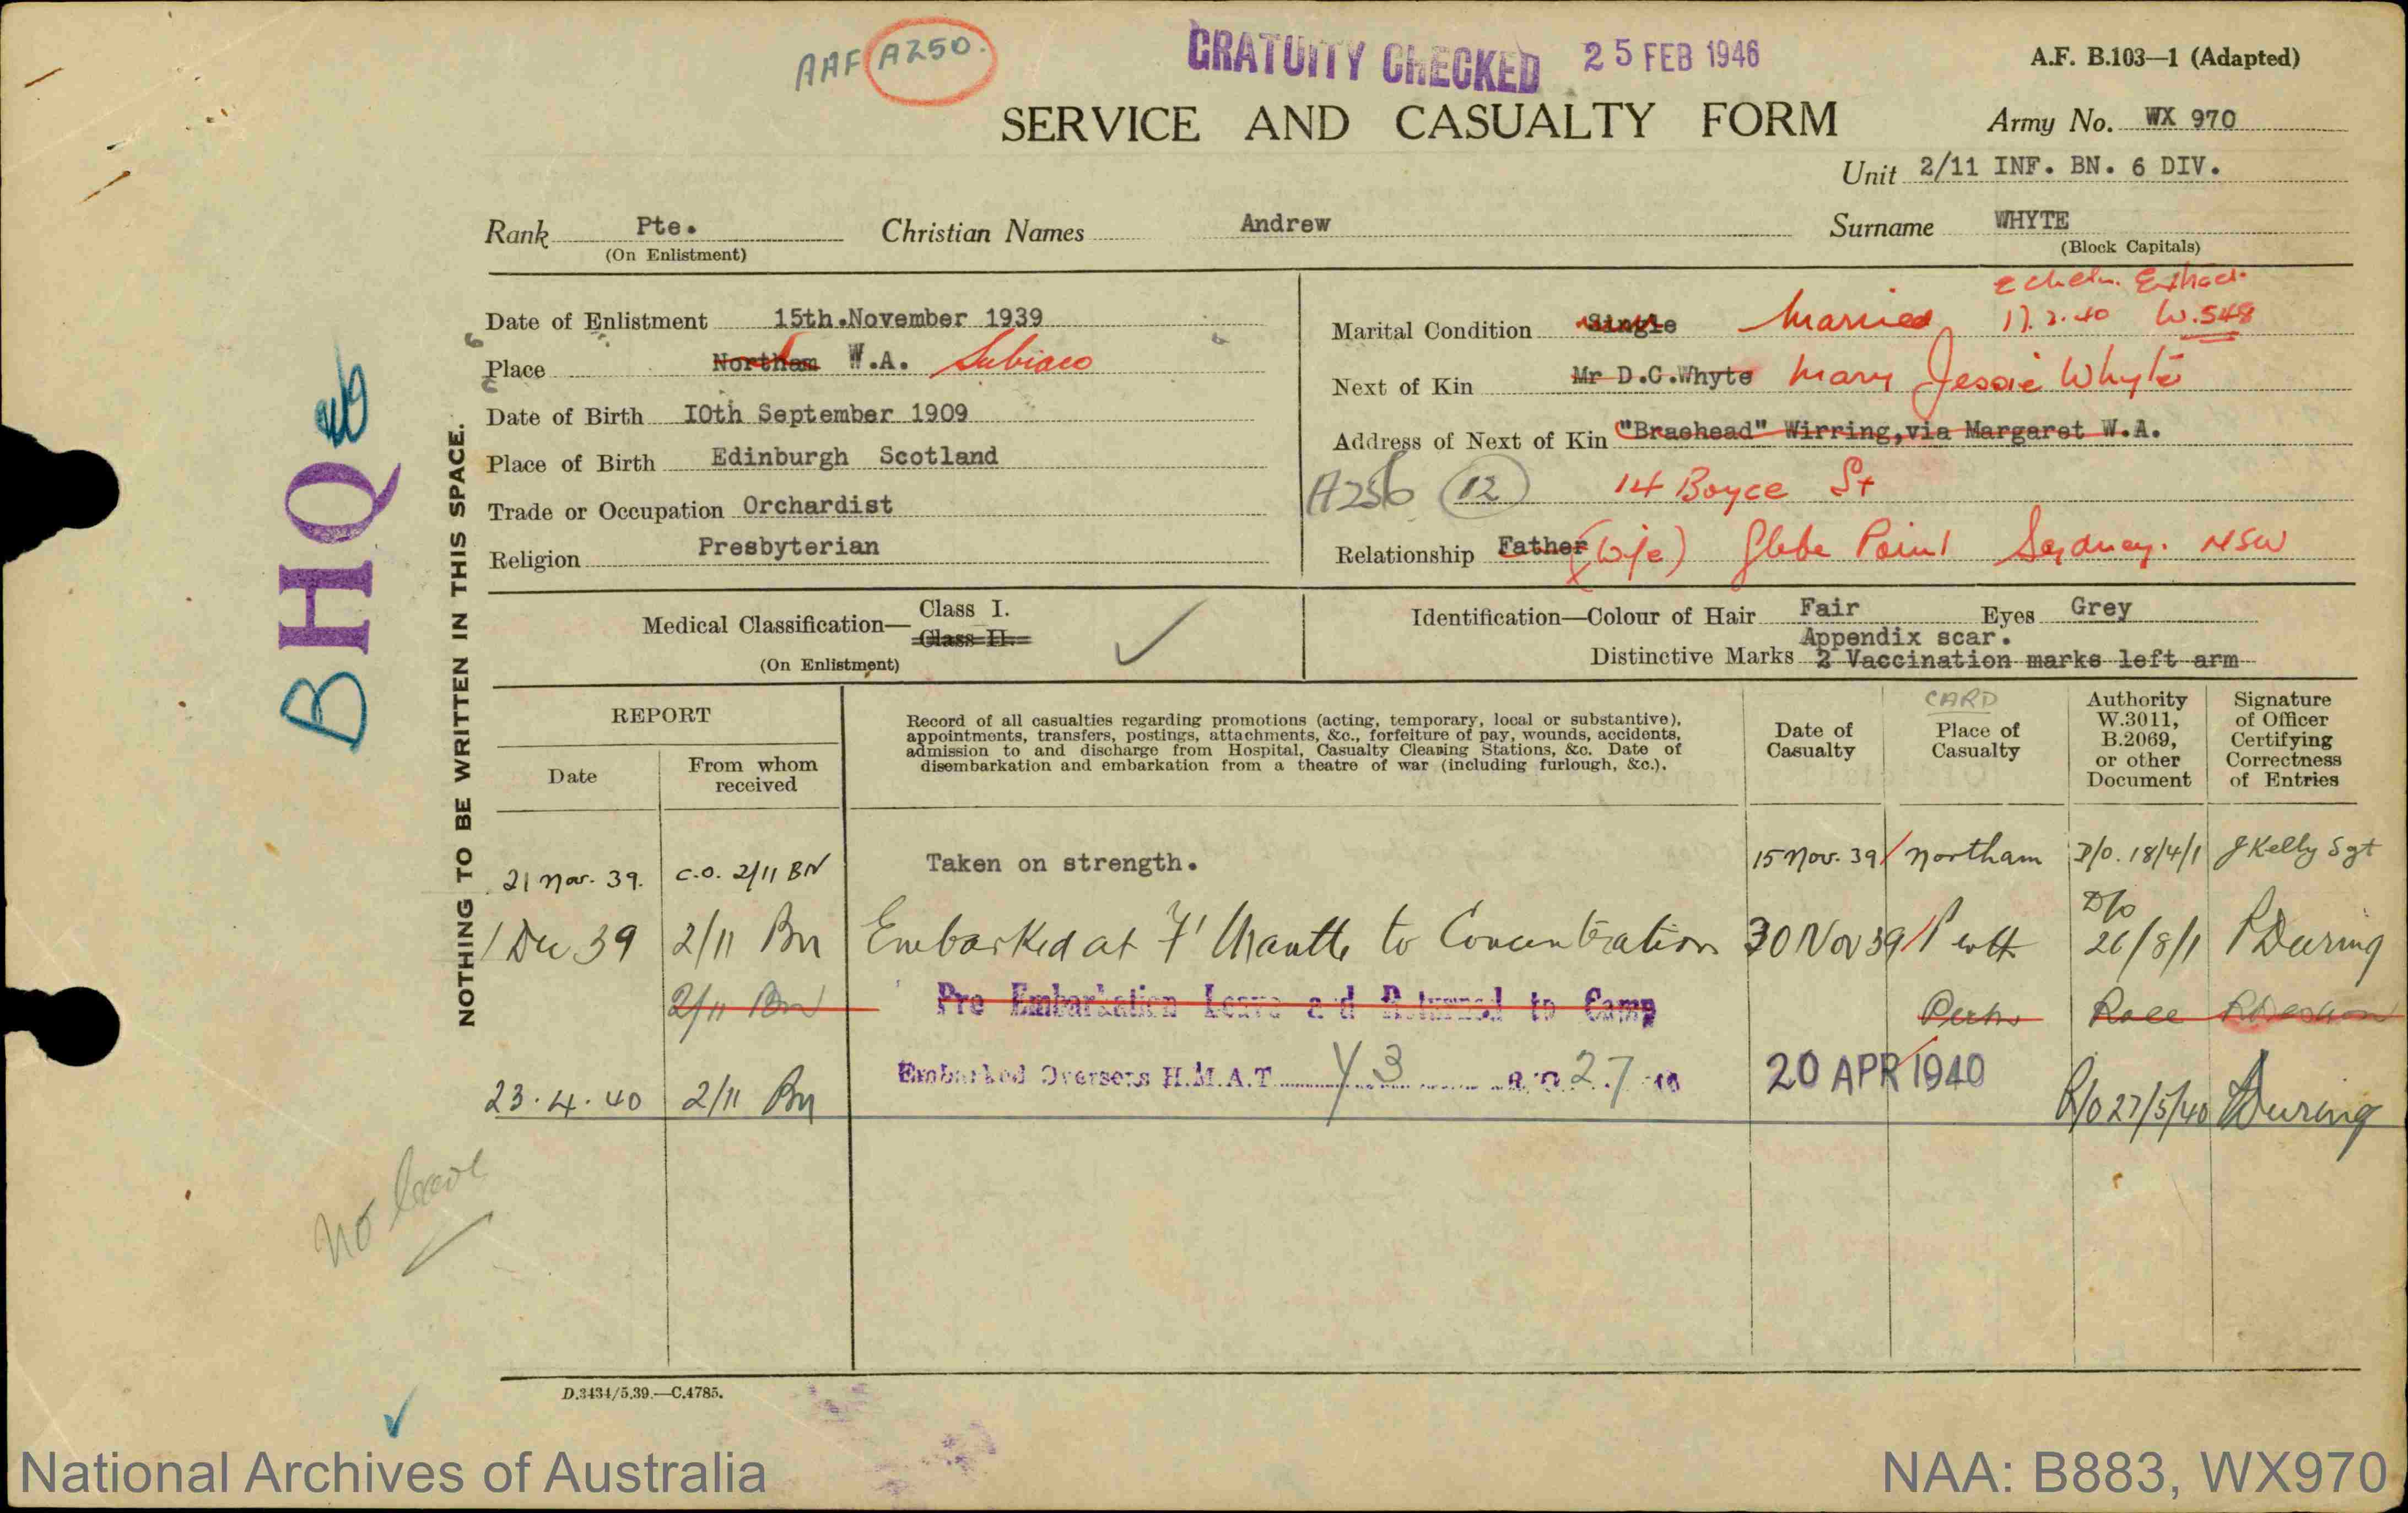 AAF A250.
GRATUITY CHECKED 25 FEB 1946
A.F. B.103—1 (Adapted)
SERVICE AND CASUALTY FORM
Army No. WX 970
Unit 2/11 INF. BN. 6 DIV.
Rank Pte. Christian Names Andrew Surname WHYTE
(On Enlistment) (Block Capitals)
Date of Enlistment 15th.November 1939
Place Northam W.A. Subiaco
Date of Birth IOth September 1909
Place of Birth Edinburgh Scotland
Trade or Occupation Orchardist
Religion Presbyterian
Extract
Marital Condition Single Married 17.2.40 W.548
Next of Kin Mr D.C.Whyte Mary Jessie Whyte
Address of Next of Kin "Braehead" Wirring,via Margaret W.A.
A256 12 14 Boyce St
Relationship Father (Wife) Glebe Point Sydney. NSW
Medical Classification— Class I.
Class II.
(On Enlistment)
Identification—Colour of Hair Fair Eyes Grey
Appendix scar.
Distinctive Marks 2 Vaccination marks left arm
BHQ
NOTHING TO BE WRITTEN IN THIS SPACE.
REPORT
Date
From whom received
Record of all casualties regarding promotions (acting, temporary, local or substantive),
appointments, transfers, postings, attachments, &c., forfeiture of pay, wounds, accidents,
admission to and discharge from Hospital, Casualty Clearing Stations, &c. Date of
disembarkation and embarkation from a theatre of war (including furlough, &c.).
Date of Casualty
CARD
Place of Casualty
Authority W.3011, B.2069, or other Document
Signature of Officer Certifying Correctness of Entries
21 Nov. 39. C.O. 2/11 BN Taken on strength. 15 Nov. 39 Northam D/O. 18/4/1 J Kelly Sgt
1 Dec 39 2/11 Bn Embarked at F'Mantle to Concentration 30 Nov 39 Perth D/O 26/8/1
2/11 Bn Pre Embarkation Leave and Returned to Camp Perth
23.4.40 2/11 Bn Embarked Overseas H.M.A.T. Y3 R.O. 27 40 20 APR 1940 R/O 27/5/40
No leave
D.3434/5.39.—C.4785.
National Archives of Australia
NAA: B883, WX970